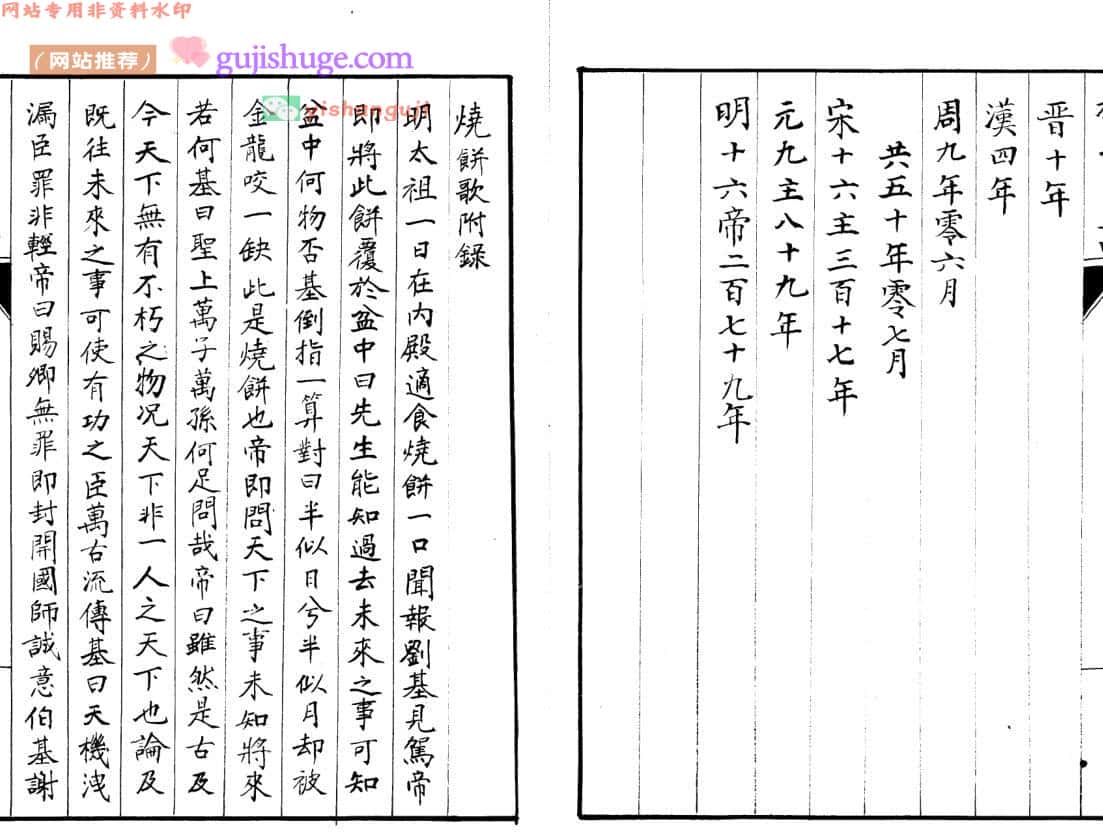 网站专用非资料水印
（网站推荐）
gujishuge.com
yishanguji
晋十年
漢四年
周九年零六月
共五十年零七月
宋十六主三百十七年
元九主八十九年
明十六帝二百七十九年
燒餅歌附録
明太祖一日在内殿適食燒餅一口聞報劉基見駕帝
即將此餅覆於盆中曰先生能知過去未來之事可知
盆中何物否基倒指一算對曰半似日兮半似月却被
金龍咬一缺此是燒餅也帝即問天下之事未知將來
若何基曰聖上萬子萬孫何足問哉帝曰雖然是古及
今天下無有不朽之物况天下非一人之天下也論及
既往未來之事可使有功之臣萬古流傳基曰天機洩
漏臣罪非輕帝曰賜卿無罪即封開國師誠意伯基謝